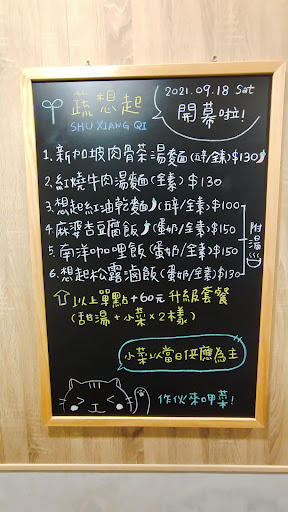 蔬想起
SHU XIANG QI
2021.09.18 Sat
開幕啦!
1.新加坡肉骨茶湯麵(五辛/全素)$130
2.紅燒牛肉湯麵(全素)$130
3.想起紅油乾麵(五辛/全素)$100
4.麻婆豆腐飯(蛋奶/全素)$150
5.南洋咖哩飯(蛋奶/全素)$150
6.想起松露滷飯(蛋奶/全素)$130
附湯
以上單點+60元升級套餐
(甜湯+小菜×2樣)
小菜以當日供應為主
作伙來呷菜!